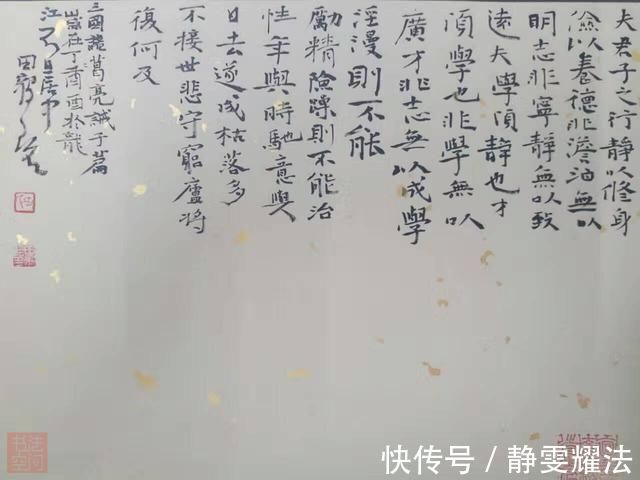 夫君子之行静以修身
儉以養德非澹泊無以
明志非寧静無以致
遠夫學須静也才
須學也非學無以
廣才非志無以成學
淫漫則不能
勵精險躁則不能治
性年與時馳意與
日去遂成枯落多
不接世悲守窮廬將
復何及
三國諸葛亮誡子篇
歲在丁酉酉於龍
江
田
书法空间
快传号 / 静雯耀法